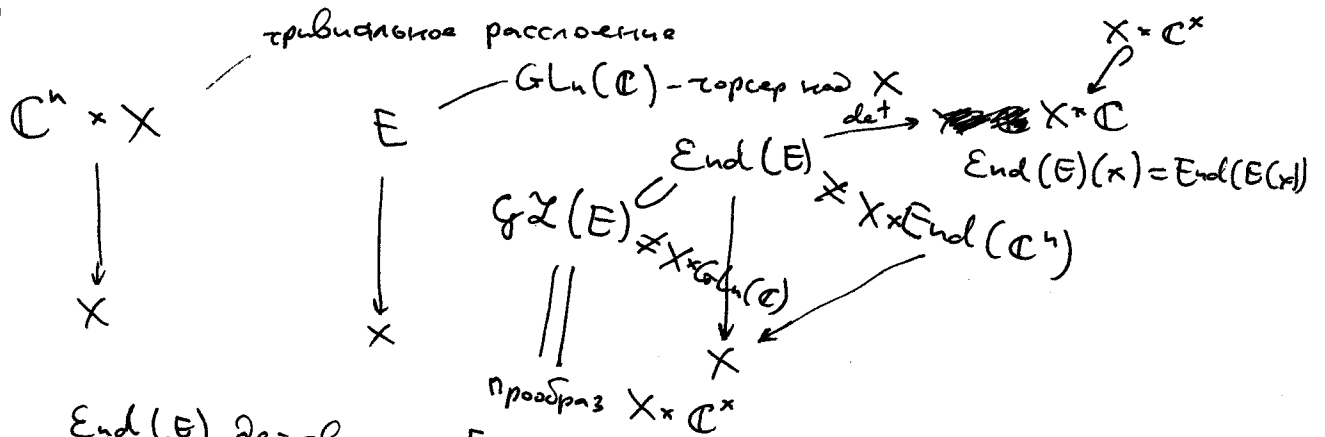 тривиальное расслоение
X × ℂ^×
GLn(ℂ) - торсер над X
ℂ^n × X
E
det
X × ℂ
End(E)
End(E)(x) = End(E(x))
GL(E)
≠ X × End(ℂ^n)
≠ X × GLn(ℂ)
X
X
X
прообраз X × ℂ^×
End(E)